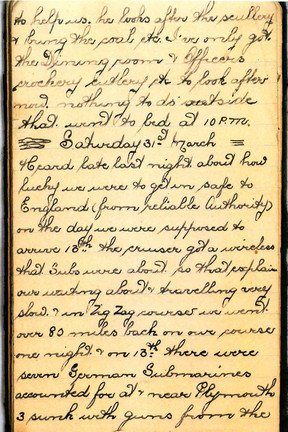 to help us. he looks after the scullery
& bring the coal etc. I've only got
the Dining room & Officers
crockery cutlery etc to look after
now. nothing to do outside
that. went to bed at 10 P.M.
Saturday 31st March
Heard late last night about how
lucky we were to get in safe to
England (from reliable Authority)
on the day we were supposed to
arrive 18th the cruiser got a wireless
that Subs were about. so that explain
our waiting about & travelling very
slow. & in Zig Zag course we went
over 80 miles back on our course
one night. & on 18th there were
seven German Submarines
accounted for at & near Plymouth
3 sunk with guns from the
51